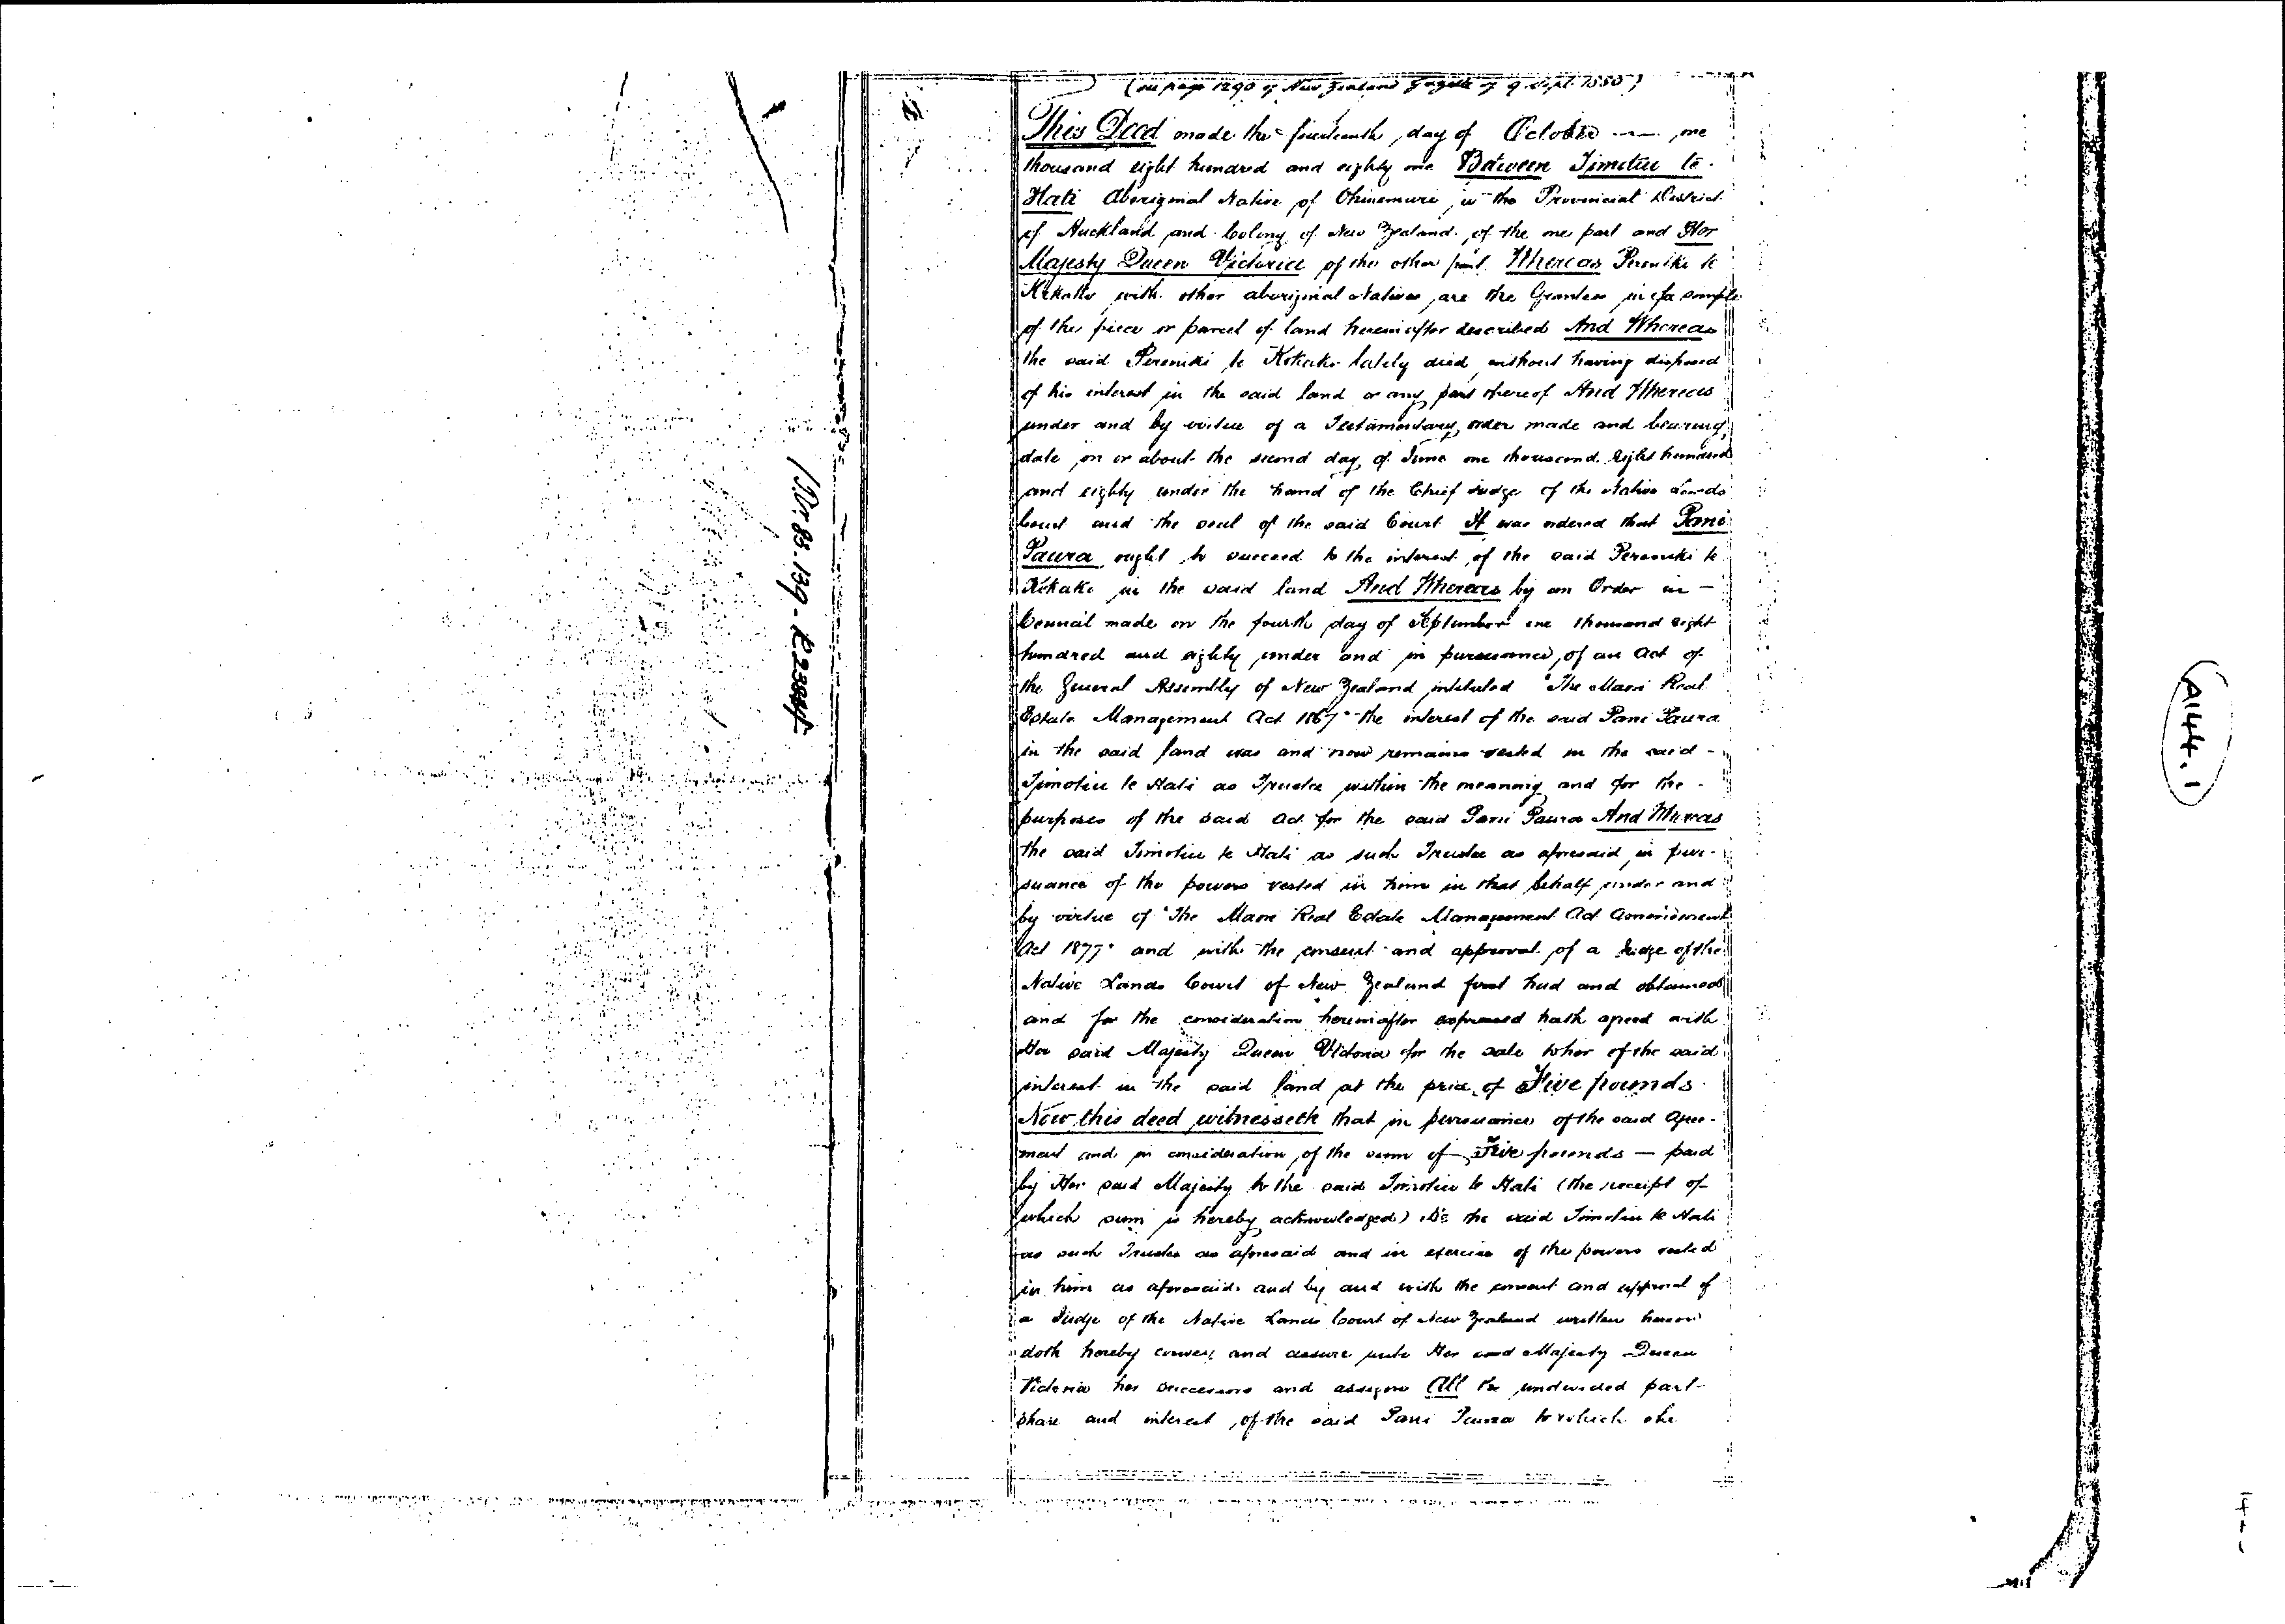 (on page 1290 of New Zealand Gazette of 9 Sept. 1880)
This Deed made the fourteenth day of October one
thousand eight hundred and eighty one Between Timotiu te
Hati Aboriginal Native of Ohinemuri in the Provincial District
of Auckland and Colony of New Zealand of the one part and Her
Majesty Queen Victoria of the other part. Whereas Pereniki te
Kokako with other aboriginal Natives are the Grantees in fee simple
of the piece or parcel of land hereinafter described And Whereas
the said Pereniki te Kokako lately died without having disposed
of his interest in the said land or any part thereof And Whereas
under and by virtue of a Testamentary order made and bearing
date on or about the second day of June one thousand eight hundred
and eighty under the hand of the Chief Judge of the Native Lands
Court and the seal of the said Court It was ordered that Pani
Paura ought to succeed to the interest of the said Pereniki te
Kokako in the said land And Whereas by an Order in –
Council made on the fourth day of September one thousand eight
hundred and eighty under and in pursuance of an Act of
the General Assembly of New Zealand intituled "The Maori Real
Estate Management Act 1867" the interest of the said Pani Paura
in the said land was and now remains vested in the said –
Timotiu te Hati as Trustee within the meaning and for the -
purposes of the said Act for the said Pani Paura And Whereas
the said Timotiu te Hati as such Trustee as aforesaid in pur-
suance of the powers vested in him in that behalf under and
by virtue of "The Maori Real Estate Management Act Amendment
Act 1877" and with the consent and approval of a Judge of the
Native Lands Court of New Zealand first had and obtained
and for the consideration hereinafter expressed hath agreed with
Her said Majesty Queen Victoria for the sale to her of the said
interest in the said land at the price of Five pounds
Now this deed witnesseth that in pursuance of the said Agree-
ment and in consideration of the sum of Five pounds — paid
by Her said Majesty to the said Timotiu te Hati (the receipt of
which sum is hereby acknowledged) He the said Timotiu te Hati
as such Trustee as aforesaid and in exercise of the powers vested
in him as aforesaid and by and with the consent and approval of
a Judge of the Native Lands Court of New Zealand written hereon
doth hereby convey and assure unto Her said Majesty Queen
Victoria her successors and assigns All the undivided part
share and interest of the said Pani Paura to which she
A144.1